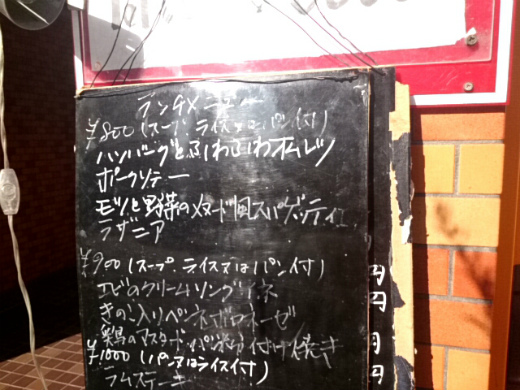 ランチメニュー
¥800(スープ、ライス又はパン付)
ハンバーグとふわふわオムレツ
ポークソテー
モツと野菜のメヌード風スパゲッティ
ラザニア
¥900(スープ、ライス又はパン付)
エビのクリームソース
きのこ入りペンネボロネーゼ
鶏のマスタードパン粉付け焼き
¥1000(パン又はライス付)
ラムステーキ
円
円
円
円